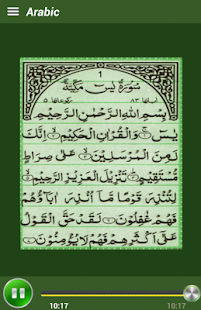 Arabic
1
سورة يس مكية
آياتها ٨٣ ركوعاتها ٥
بسم الله الرحمن الرحيم
يس والقرآن الحكيم إنك
لمن المرسلين على صراط
مستقيم تنزيل العزيز الرحيم
لتنذر قوما ما أنذر آباؤهم
فهم غفلون لقد حق القول
على أكثرهم فهم لا يؤمنون
10:17 10:17